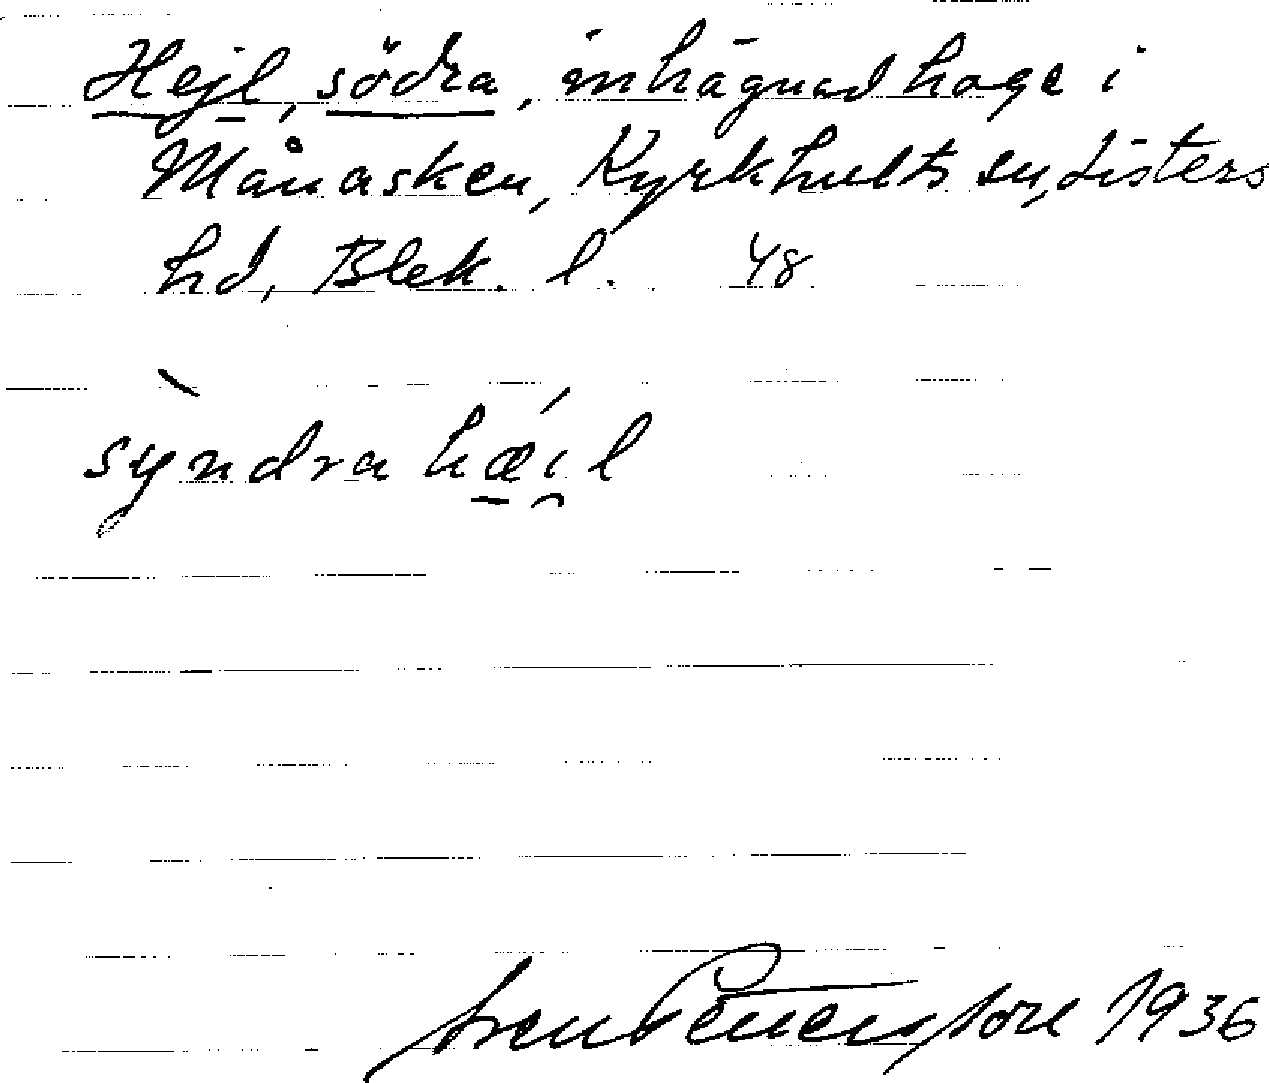 Hejl, södra, inhägnad hage i
Månasken, Kyrkhults sn, Listers
hd, Blek. l. 48
sỳndra hǽi̯l
Sven Benson 1936